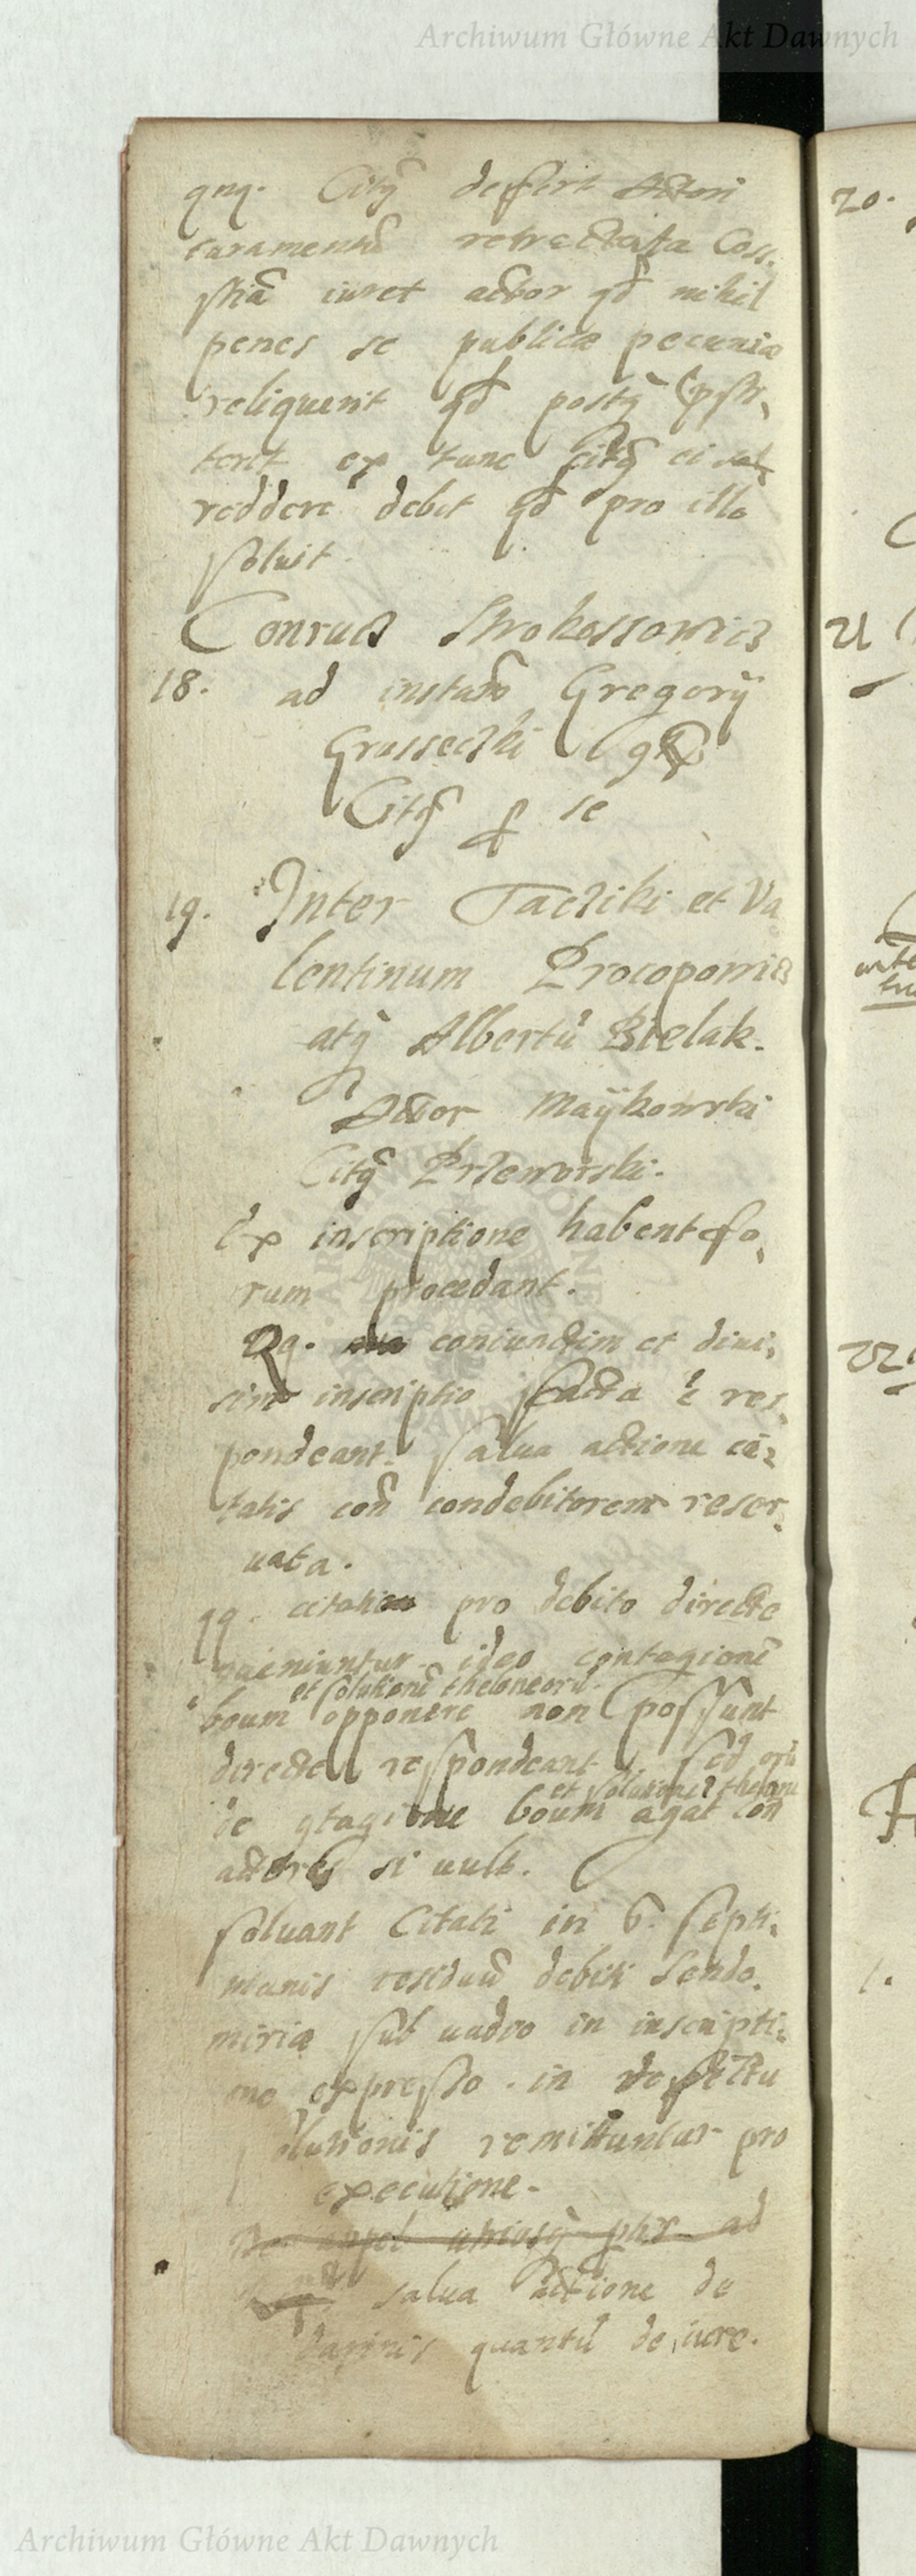 Archiwum Główne Akt Dawnych
qnq. Citq defert Actori
iuramentũ retractata Coss.
iuret actor qd nihil
penes se publicæ pecuniæ
reliquerit qd postq
ex tunc citq ei
reddere debet qd pro illo
soluit
Conrad
18. ad instam Gregorij
Grossecзki
Citq p se
19. Inter Tacziki et Va
lentinum Procopowicз
atq Albertũ Bielak.
Actor Maÿkowski
Citq Przeworski.
Ex inscriptione habent fo,
rum procedant.
coniunctim et diui,
sim inscriptio facta ẽ res,
pondeant. salua actione
con condebitorem reser,
uata.
qq. pro debito directe
ideo contagionẽ
et solutionẽ theloneorũ
boum opponere non possunt
directe respondeant sed
et solutione
de gtagione boum agat con
actores si uult.
soluant Citati in 6. septi,
manis residuũ debiti Sendo,
miriæ sub uadio in inscripti,
one expresso. in defectu
solutionis remittuntur pro
executione.
appel utriusq ad
salua actione de
damnis quantũ de iure.
20.
21
22
Archiwum Główne Akt Dawnych